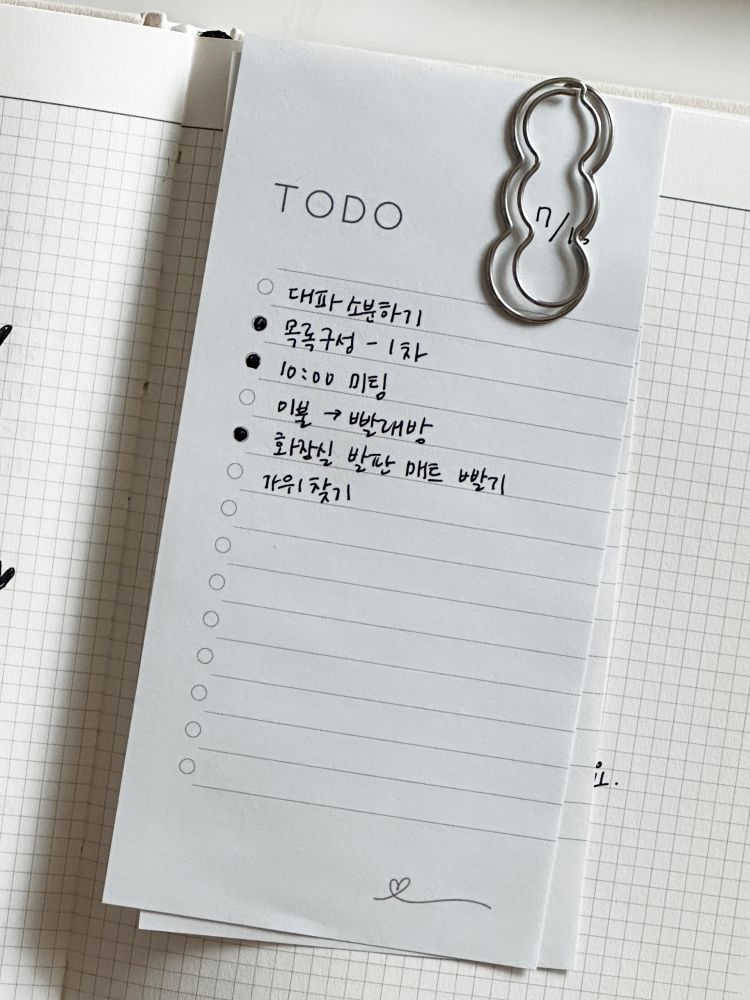 TODO
대파 소분하기
목록구성 - 1차
10:00 미팅
이불 → 빨래방
화장실 발판 매트 빨기
가위 찾기
요.